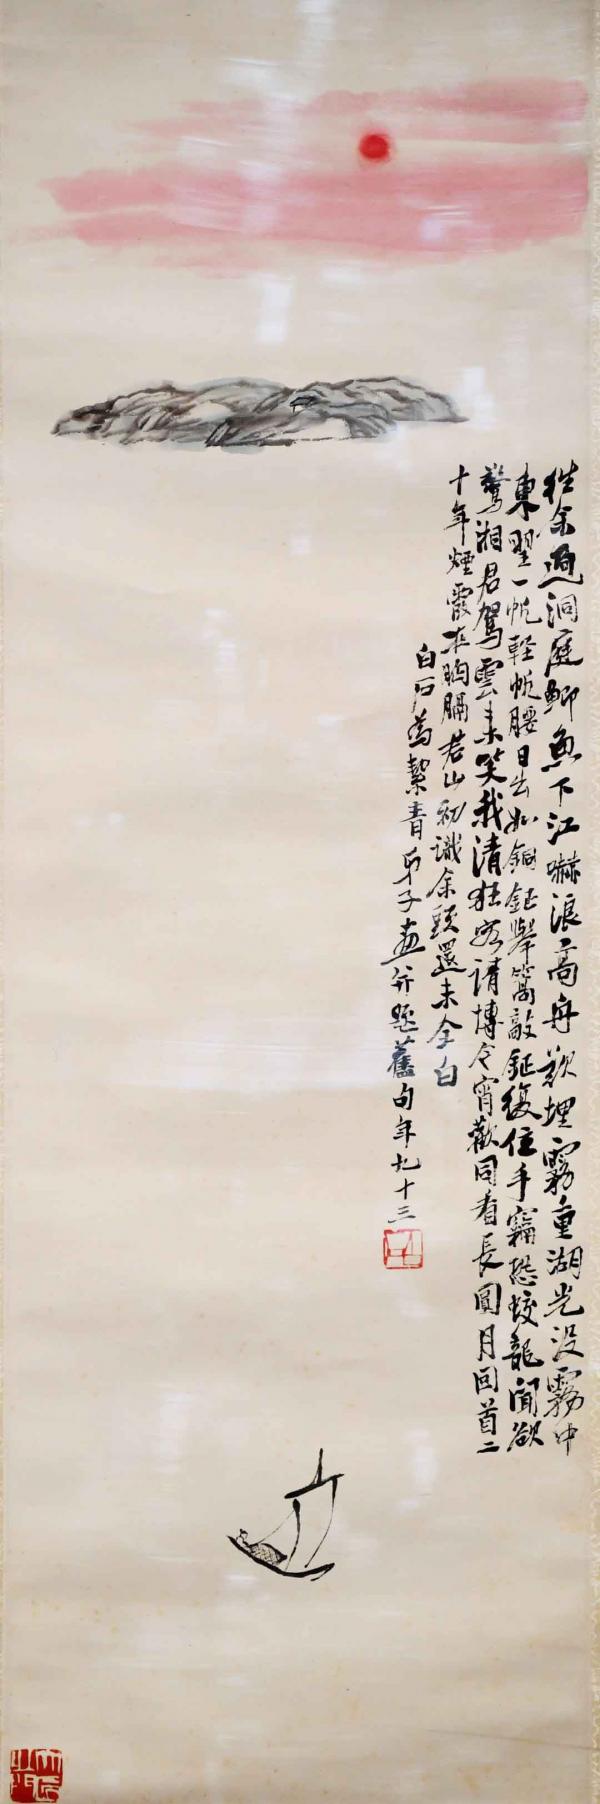 往余過洞庭鯽魚下江嚇浪高舟欲埋霧重湖光没霧中
東望一帆輕帆腰日出如銅鉦舉篙敲鉦復住手竊恐蛟龍聞欲
驚湘君駕雲來笑我清狂客請博今宵歡同看長圓月回首二
十年煙霞在胸膈君山初識余頭還未全白
白石為絜青弟子畫并題舊句年九十三